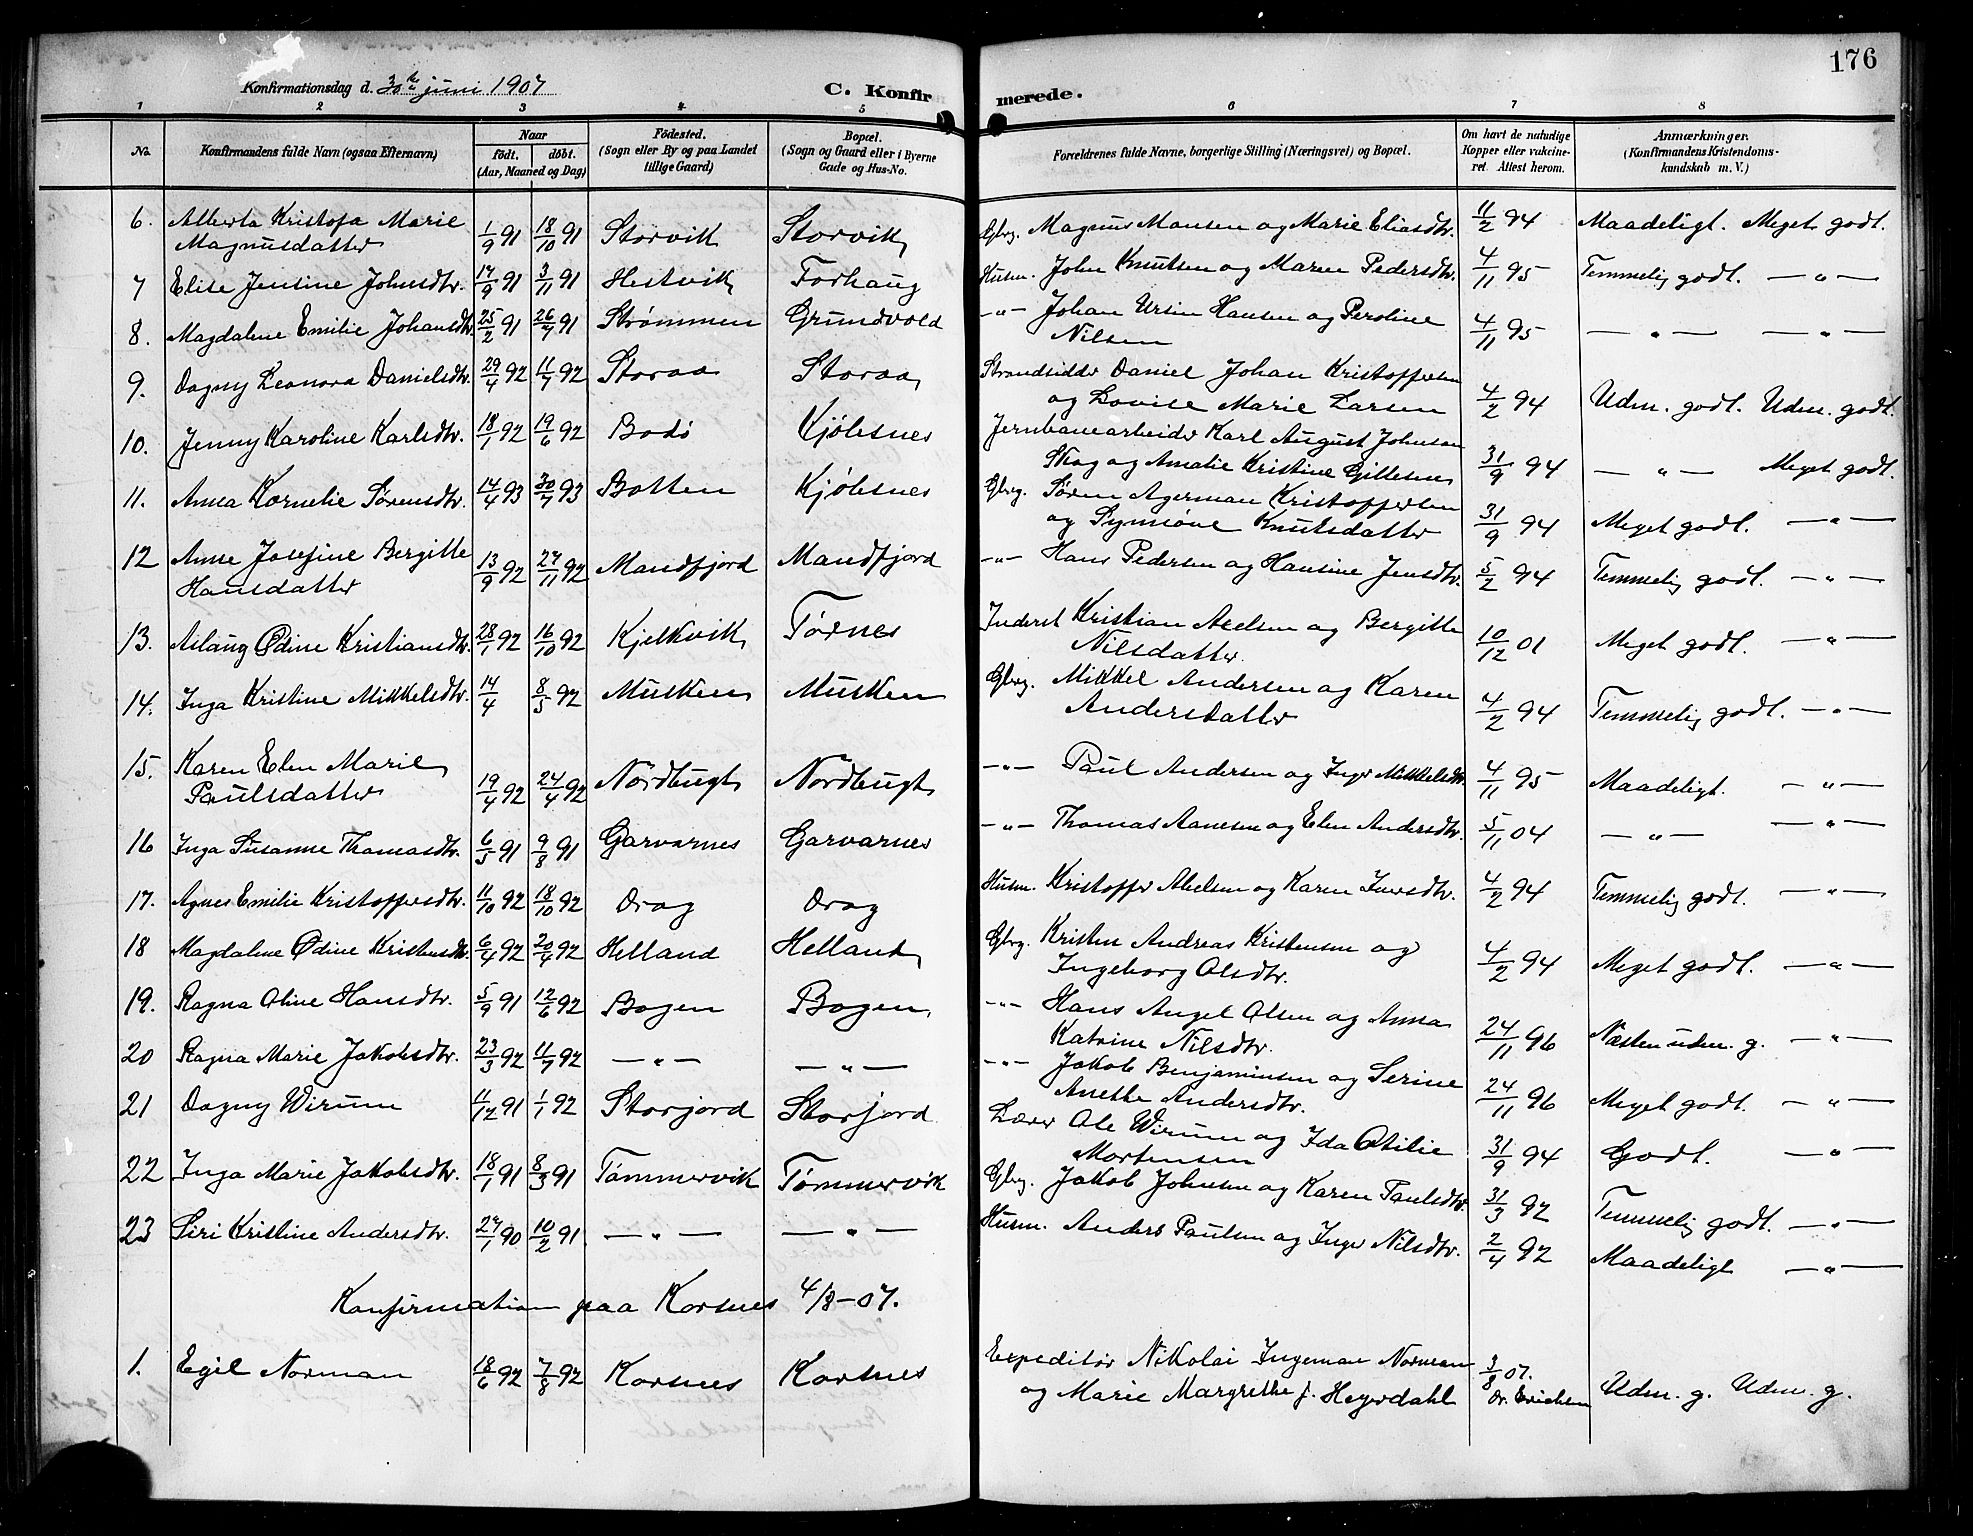 176
Konfirmationsdag d. 30te juni 1907
C. Konfirmerede.
1 2 3 4 5 6 7 8
No. Konfirmandens fulde Navn (ogsaa Efternavn) Naar født. døbt. (Aar, Maaned og Dag) Fødested. (Sogn eller By og paa Landet tillige Gaard) Bopæl. (Sogn og Gaard eller i Byerne Gade og Hus-No. Forældrenes fulde Navne, borgerlige Stilling (Næringsvei) og Bopæl. Om havt de naturlige Kopper eller vakcineret. Attest herom. Anmærkninger. (Konfirmandens Kristendomskundskab m. V.)
6. Alberta Kristofa Marie Magnusdatter 1/9 91 18/10 91 Storvik Storvik Gbrg. Magnus Monsen og Marie Eliasdtr. 11/2 94 Maadeligt. Meget godt.
7 Elise Jensine Johnsdtr. 17/9 91 3/11 91 Hestvik Forhaug Husm. John Knutsen og Maren Pedersdtr. 4/11 95 Temmelig godt. — " —
8. Magdalene Emilie Johansdtr. 25/2 91 26/7 91 Strømmen Grundvold — " — Johan Ursin Hansen og Peroline Nilsen 4/11 95 — " — — " —
9. Dagny Leonora Danielsdtr. 29/4 92 11/7 92 Storaa Storaa Strandsidder Daniel Johan Kristoffersen og Lovise Marie Larsen 4/2 94 Udm. godt. Udm. godt.
10. Jenny Karoline Karlsdtr. 18/1 92 19/6 92 Bodö Kjölesnes Jernbanearbeider Karl August Johnsen Skog og Amalie Kristine Gillesnes 31/9 94 — " — Meget godt.
11. Anna Kornelie Sørensdtr. 14/4 93 30/7 93 Botten Kjölesnes Gbrg. Søren Agerman Kristoffersen og Synnöve Knutsdatter 31/9 94 Meget godt. — " —
12 Anne Josefine Bergitte Hansdatter 13/9 92 27/11 92 Mandfjord Mandfjord — " — Hans Pedersen og Hansine Jensdtr. 5/2 94 Temmelig godt. — " —
13. Aslaug Ødine Kristiansdtr. 28/1 92 16/10 92 Kjelkvik Tørnes Inderst Kristian Axelsen og Bergitte Nilsdatter. 10/12 01 Meget godt. — " —
14. Inga Kristine Mikkelsdtr. 14/4 8/5 92 Musken Musken Gbrg. Mikkel Andersen og Karen Andersdatter 4/2 94 Temmelig godt. — " —
15. Karen Elen Marie Paulsdatter 19/4 92 24/4 92 Nordbugt Nordbugt — " — Paul Andersen og Inger Mikkelsdtr. 4/11 95 Maadeligt. — " —
16 Inga Susanne Thomasdtr. 6/5 91 9/8 91 Garvarnes Garvarnes — " — Thomas Aanesen og Elen Andersdtr. 5/11 04 — " — — " —
17. Agnes Emilie Kristoffersdtr. 11/10 92 18/10 92 Drag Drag Husm. Kristoffer Abelsen og Karen Iversdtr. 4/2 94 Temmelig godt. — " —
18 Magdalene Ødine Kristensdtr. 6/4 92 20/4 92 Helland Helland Gbrg. Kristen Andreas Kristensen og Ingeborg Olsdtr. 4/2 94 Meget godt. — " —
19. Ragna Oline Hansdtr. 5/9 91 12/6 92 Bogen Bogen — " — Hans Angel Olsen og Anna Katrine Nilsdtr. 24/11 96 Næsten udm. g. — " —
20 Ragna Marie Jakobsdtr. 23/3 92 11/7 92 — " — — " — — " — Jakob Benjaminsen og Serine Anette Andersdtr. 24/11 96 Meget godt. — " —
21 Dagny Wirum 11/12 91 1/1 92 Storjord Storjord Lærer Ole Wirum og Ida Otilie Mortensen 31/9 94 Godt. — " —
22 Inga Marie Jakobsdtr. 18/1 91 8/3 91 Tømmervik Tømmervik Gbrg. Jakob Johnsen og Karen Paulsdtr. 31/3 92 Temmelig godt. — " —
23 Siri Kristine Andersdtr. 27/1 90 10/2 91 — " — — " — Husm. Anders Paulsen og Inger Nilsdtr. 2/4 92 Maadeligt — " —
Konfirmation paa Korsnes 4/8 – 07.
1. Egil Norman 18/6 92 7/8 92 Korsnes Korsnes Expeditör Nikolai Ingeman Norman og Marie Margrethe f. Heyerdahl 3/8 07. Dr. Erichsen Udm. g. Udm. g.